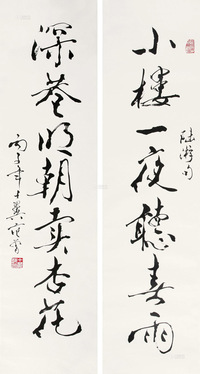 小樓一夜聽春雨
陸游句
深巷明朝賣杏花
丙子年十翼范曾